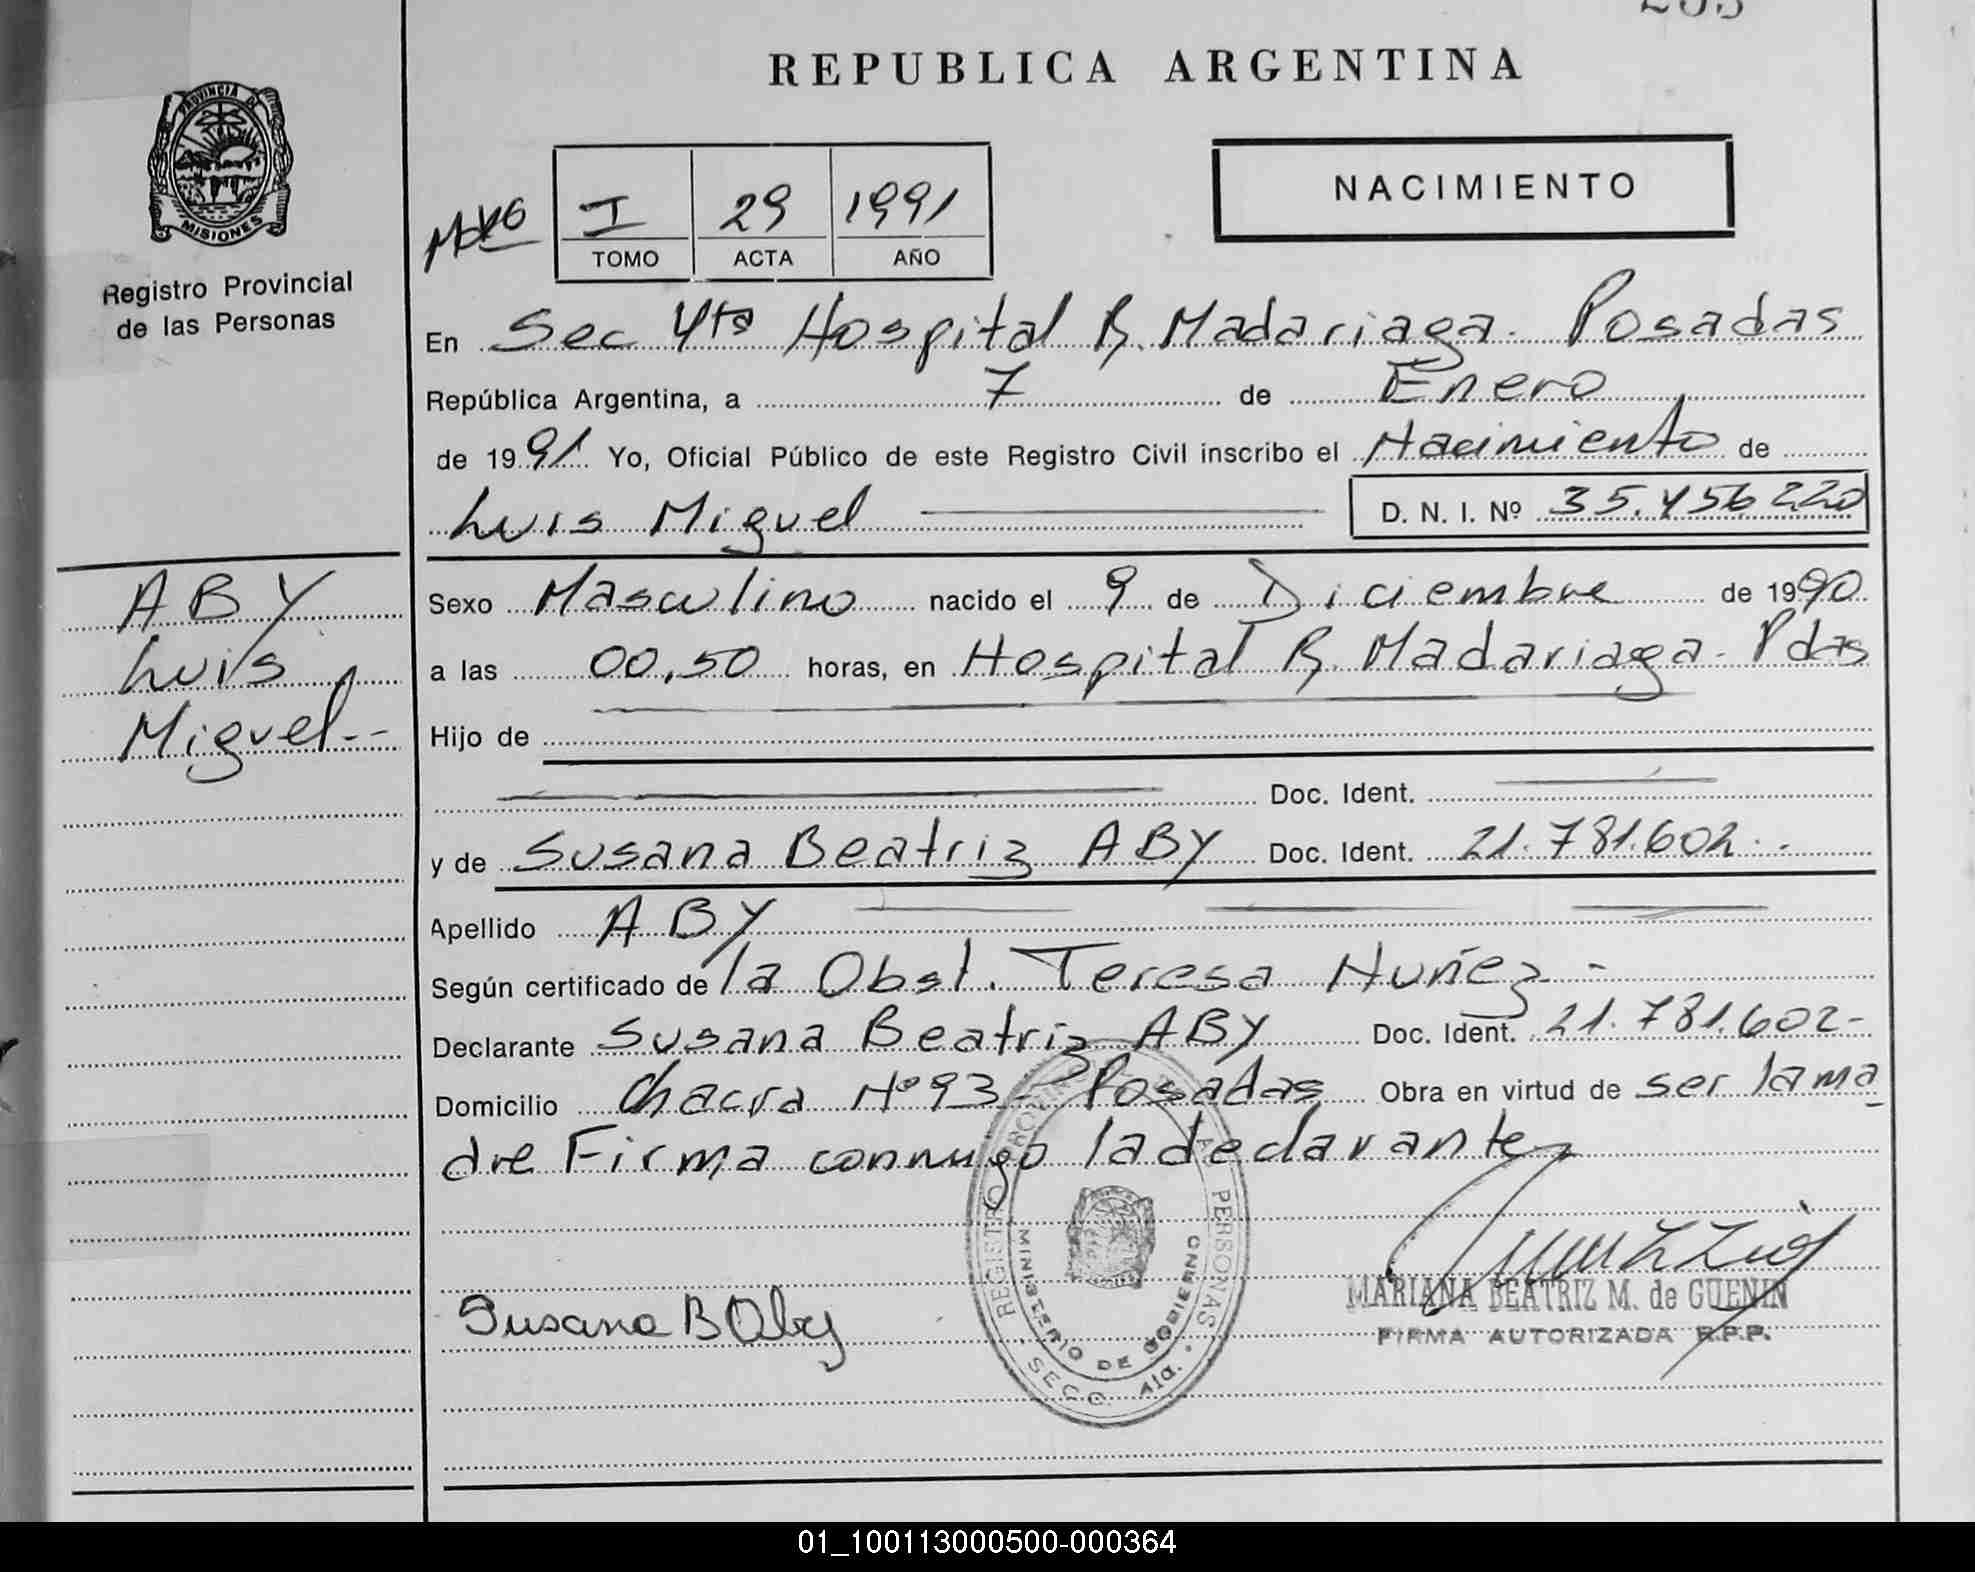 REPUBLICA ARGENTINA
PROVINCIA DE
MISIONES
Registro Provincial
de las Personas
I 29 1991
TOMO ACTA AÑO
NACIMIENTO
En Sec 4ta Hospital R. Madariaga. Posadas
República Argentina, a 7 de Enero
de 1991 Yo, Oficial Público de este Registro Civil inscribo el Nacimiento de
Luis Miguel D. N. I. Nº 35.456.220
ABY
Luis
Miguel--
Sexo Masculino nacido el 9 de Diciembre de 1990
a las 00,50 horas, en Hospital R. Madariaga. Pdas
Hijo de
Doc. Ident.
y de Susana Beatriz ABY Doc. Ident. 21.781.602.-
Apellido ABY
Según certificado de la Obst. Teresa Nuñez-
Declarante Susana Beatriz ABY Doc. Ident. 21.781.602-
Domicilio Chacra Nº 93 - Posadas Obra en virtud de ser la ma
dre Firma conmigo la declarante
Susana B Aby
MARIANA BEATRIZ M. de GUENIN
FIRMA AUTORIZADA R.P.P.
REGISTRO PROVINCIAL PERSONAS
MINISTERIO DE GOBIERNO
SECC. 4ta.
01_100113000500-000364